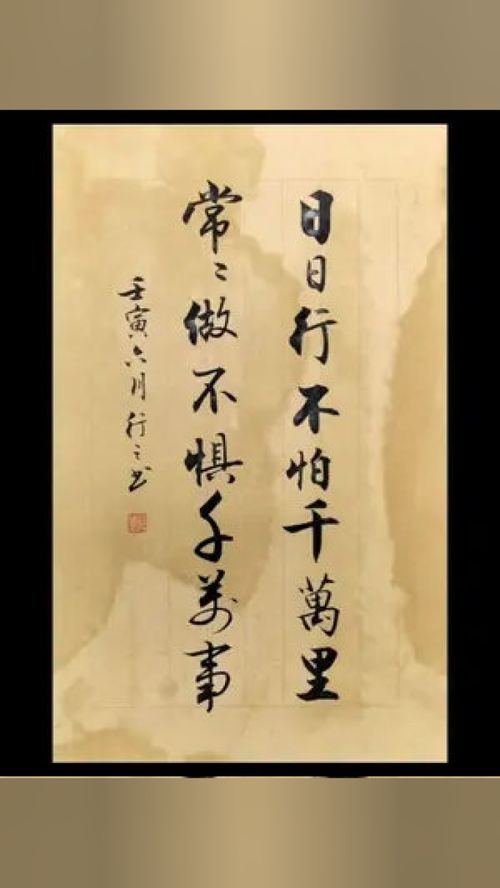 日日行不怕千萬里
常〻做不惧千万事
壬寅六月行之书